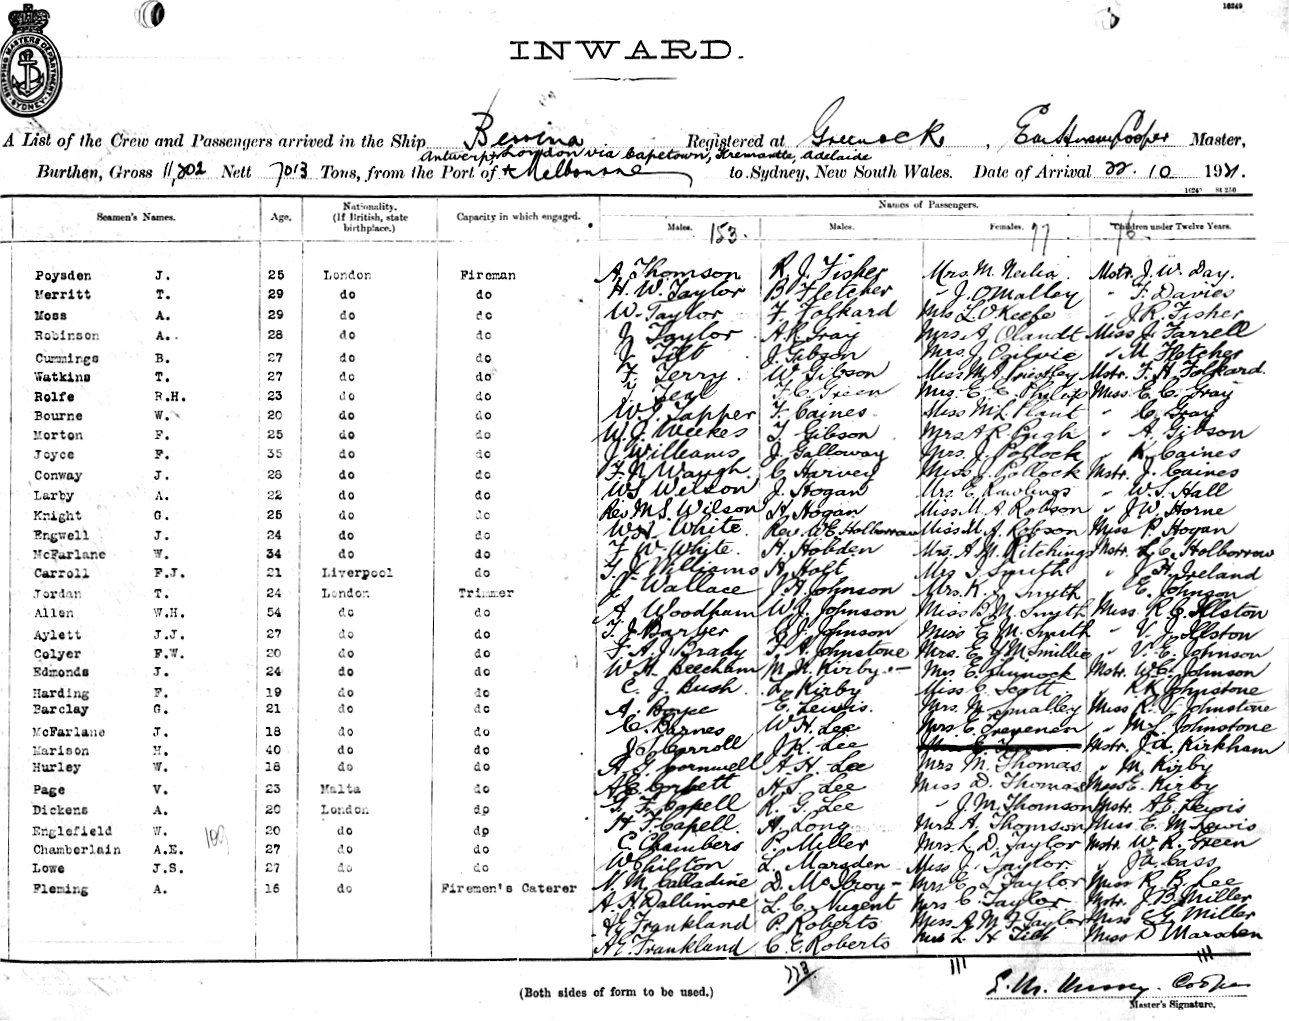 16249
SHIPPING MASTERS DEPARTMENT SYDNEY
INWARD.
A List of the Crew and Passengers arrived in the Ship Registered at Greenock, Master,
Antwerp, London via Capetown, Fremantle, Adelaide
Burthen, Gross 11,202 Nett 7013 Tons, from the Port of + Melbourne to Sydney, New South Wales. Date of Arrival 22 10 1921.
Seamen's Names. Age. Nationality. (If British, state birthplace.) Capacity in which engaged. Names of Passengers.
Males. 153. Males. Females. 77 Children under Twelve Years.
Poysden J. 25 London Fireman A. Thomson R. J. Fisher Mrs. M. Mstr. J. W. Day.
Merritt T. 29 do do H. W. Taylor B. Fletcher " J. O'Malley " F. Davies
Moss A. 29 do do W. Taylor F. Folkard Miss L. O'Keefe " J. R. Fisher
Robinson A. 28 do do J. Taylor A. R. Gray Mrs. A. Olandt Miss J. Farrell
Cummings B. 27 do do J. Tilt J. Gibson Mrs. J. Ogilvie " M. Fletcher
Watkins T. 27 do do F. Terry. W. Gibson Miss M. A. Priestley Mstr. F. H. Folkard.
Rolfe R.H. 23 do do F. C. Green Mrs. E. E. Philip Miss E. C. Gray
Bourne W. 20 do do W. G. Tapper F. Caines. Miss M. L. Plant " C. Gray
Morton F. 25 do do W. J. Weekes J. Gibson Mrs A R Pugh " A. Gibson
Joyce F. 35 do do J. Williams J. Galloway Mrs. J. Pollock " K. Caines
Conway J. 28 do do F. N. Waugh. C. Harvey Miss J. Pollock Mstr. J. Caines
Larby A. 22 do do W S Wilson J. Hogan Mrs. E. Rawlings " W. S. Hall
Knight G. 25 do do Rev M. S. Wilson H. Hogan Miss M. A Robson " J. W. Horne
Engwell J. 24 do do W. H. White. Rev W. E. Holborrow Miss M. J. Robson Miss P. Hogan
McFarlane W. 34 do do F. W. White. H. Hobden Mrs. A. M. Kitchings Mstr. L. C. Holborrow
Carroll F.J. 21 Liverpool do T. J. Williams A. Holt Mrs J. Smith " J. H. Ireland
Jordan T. 24 London Trimmer J. Wallace J. A. Johnson Mrs. K. J. Smith " E. Johnson
Allen W.H. 54 do do A. Woodham W. J. Johnson Miss B. M. Smyth Miss. R. E. Illston
Aylett J.J. 27 do do F. J. Barber L. J. Johnson Miss E. M. Smith " V. J. Illston
Colyer F.W. 20 do do F. A. J. Brady T. A. Johnstone Mrs. E. J. M. Smillie " V. E. Johnson
Edmonds J. 24 do do W. H. Beecham M. R. Kirby.- Mrs E. Mstr. W. C. Johnson
Harding F. 19 do do C. J. Bush. L. Kirby Miss C. Scott " R K Johnstone
Barclay G. 21 do do A. Boyce E. Lewis. Mrs. M. Smalley Miss R. V. Johnstone
McFarlane J. 18 do do C. Barnes W. H. Lee Mrs. E. Trevenen " M. L. Johnstone
Marison H. 40 do do J. T. Carroll J. K. Lee Mstr. J. A. Kirkham
Hurley W. 18 do do A. G. Cornwell A. H. Lee Mrs M. Thomas. " M. Kirby
Page V. 23 Malta do A. E. Corbett H. S. Lee Miss D. Thomas Miss E. Kirby
Dickens A. 20 London do G. F. Capell R. G. Lee " J. M. Thomson Mstr. A. E. Lewis
Englefield W. 20 do do H. F. Capell. A. Long Mrs. A. Thomson Miss E. M. Lewis
Chamberlain A.E. 27 do do C. Chambers P. Miller Mrs. L. D. Taylor Mstr. W. K. Green
Lowe J.S. 27 do do W. Chilton L. Marsden Miss J. Taylor. " J. A. Cass
Fleming A. 16 do Firemen's Caterer N. M. Calladine D. McIlroy - Mrs E. L. Taylor Miss R. B. Lee
A. H. Dallimore L. C. Nugent Mrs C. Taylor Mstr. J. B. Miller
Frankland P. Roberts Miss A. M. J. Taylor Miss E. G. Miller
A. E. Frankland C. E. Roberts Miss L. H. Tilt Miss D. Marsden
(Both sides of form to be used.)
Master's Signature.